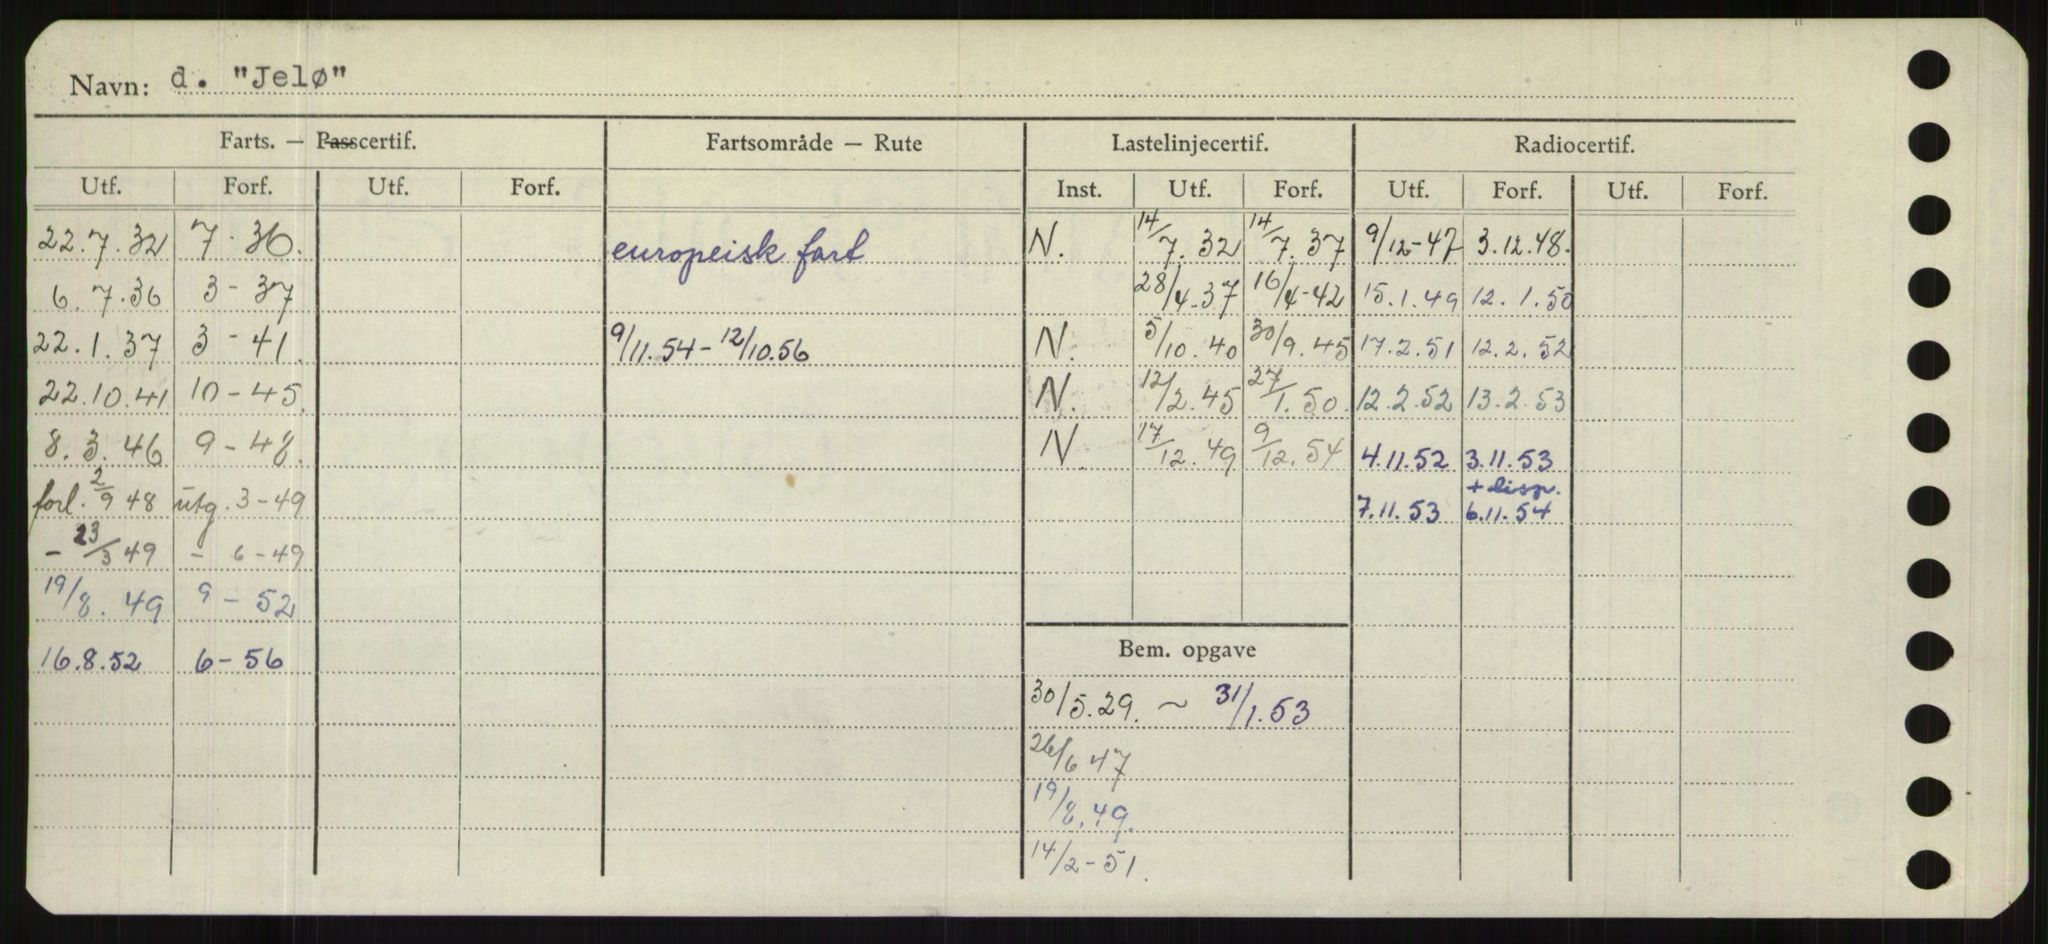 Navn: d. "Jelø"
Farts. — Passcertif. Fartsområde — Rute Lastelinjecertif. Radiocertif.
Utf. Forf. Utf. Forf. Inst. Utf. Forf. Utf. Forf. Utf. Forf.
22.7.32 7-36. europeisk fart N. 14/7.32 14/7.37 9/12-47 3.12.48.
6.7.36 3-37 28/4-37 16/4-42 15.1.49 12.1.50
22.1.37 3-41. 9/11.54-12/10.56 N. 5/10.40 30/9.45 17.2.51 12.2.52
22.10.41 10-45. N. 12/2.45 27/1.50. 12.2.52 13.2.53
8.3.46 9-48. N. 17/12.49 9/12.54 4.11.52 3.11.53
+ disp.
forl. 2/9 48 utg. 3-49 7.11.53 6.11.54
- 23/3 49 - 6-49
19/8.49 9-52
16.8.52 6-56
Bem. opgave
30/5.29. ~ 31/1.53
26/6 47
19/8.49.
14/2-51.